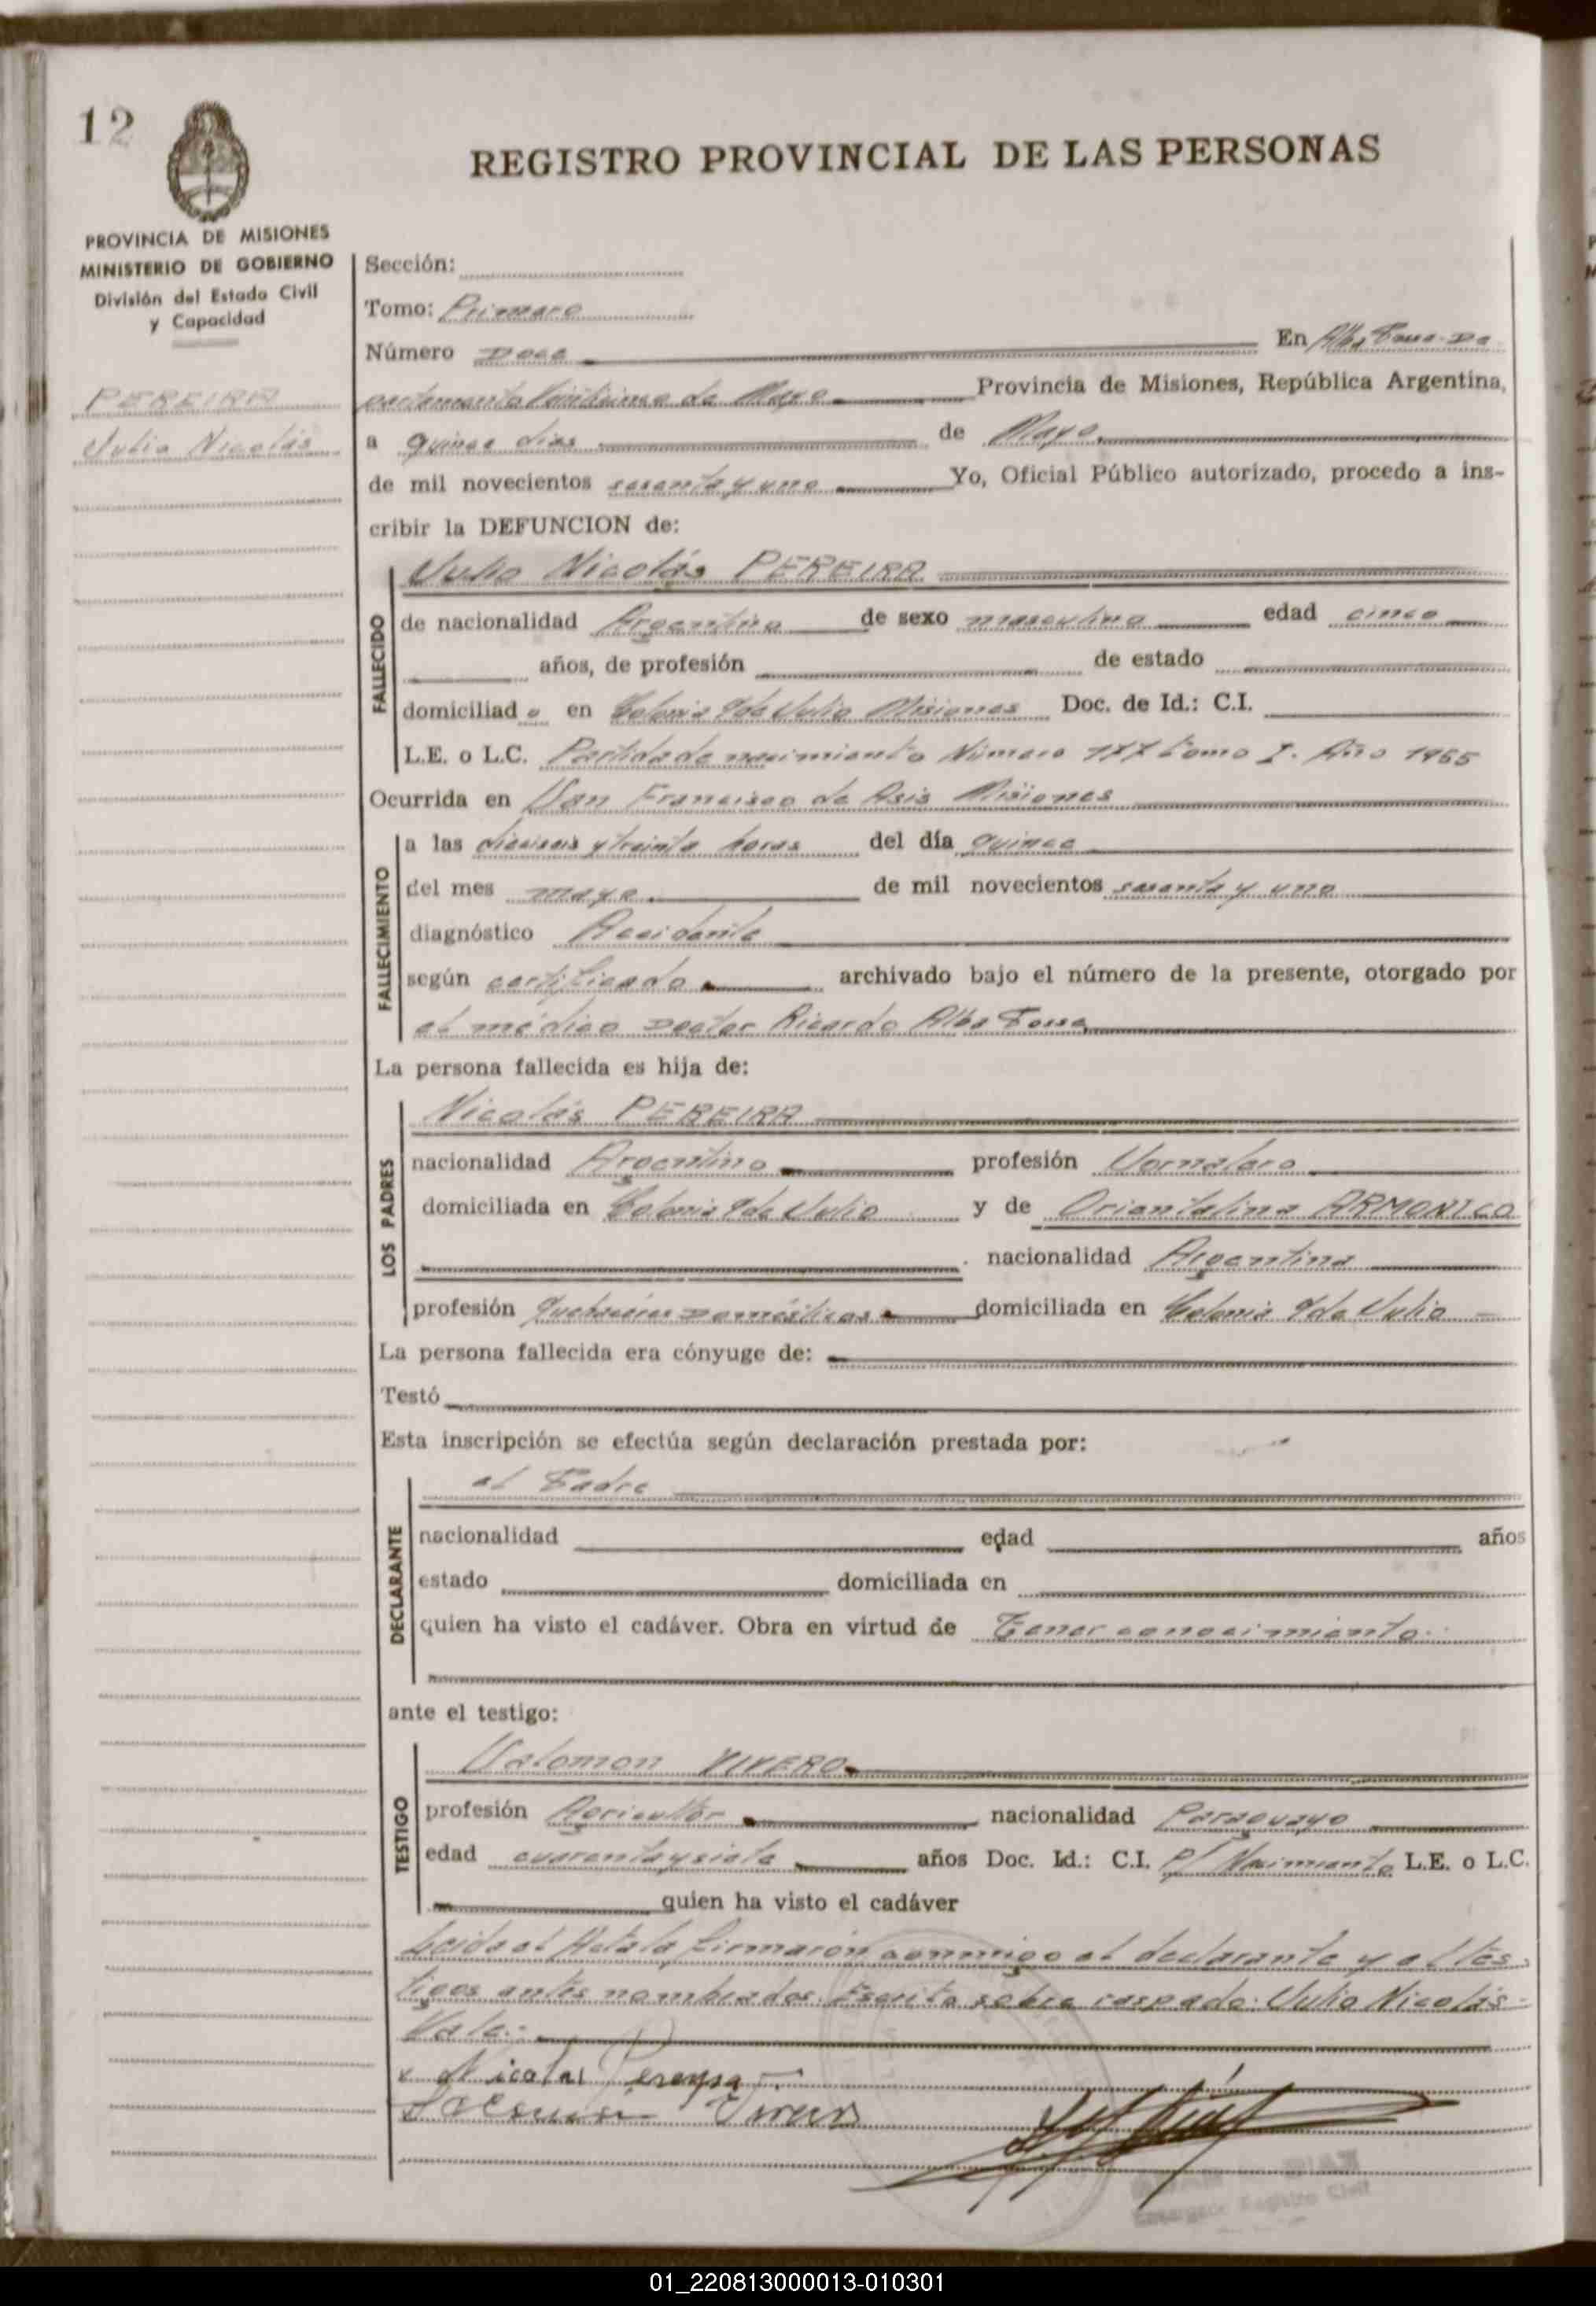 12
REGISTRO PROVINCIAL DE LAS PERSONAS
PROVINCIA DE MISIONES
MINISTERIO DE GOBIERNO
División del Estado Civil
y Capacidad
PEREIRA
Julio Nicolás
Sección:
Tomo: Primero
Número Doce En Alba Posse-De
partamento Veinticinco de Mayo Provincia de Misiones, República Argentina,
a quince días de Mayo
de mil novecientos sesenta y uno Yo, Oficial Público autorizado, procedo a ins-
cribir la DEFUNCION de:
FALLECIDO
Julio Nicolás PEREIRA
de nacionalidad Argentina de sexo masculino edad cinco
años, de profesión de estado
domiciliado en Colonia 9 de Julio Misiones Doc. de Id.: C.I.
L.E. o L.C. Partida de nacimiento Número Tomo I. Año 1965
Ocurrida en San Francisco de Asis Misiones
FALLECIMIENTO
a las dieciseis y treinta horas del día quince
del mes mayo de mil novecientos sesenta y uno
diagnóstico Accidente
según certificado archivado bajo el número de la presente, otorgado por
el médico Doctor Ricardo Alba Posse
La persona fallecida es hija de:
LOS PADRES
Nicolás PEREIRA
nacionalidad Argentino profesión Jornalero
domiciliada en Colonia 9 de Julio y de Orientalina ARMONICO
nacionalidad Argentina
profesión Quehaceres Domésticos domiciliada en Colonia 9 de Julio
La persona fallecida era cónyuge de:
Testó
Esta inscripción se efectúa según declaración prestada por:
DECLARANTE
el Padre
nacionalidad edad años
estado domiciliada en
quien ha visto el cadáver. Obra en virtud de Tener conocimiento.
ante el testigo:
TESTIGO
Salomon VIVERO
profesión Agricultor nacionalidad Paraguayo
edad cuarenta y siete años Doc. Id.: C.I. P/ Nacimiento L.E. o L.C.
quien ha visto el cadáver
Leida el Acta la firmarón conmigo el declarante y el tes
tigos antes nombrados. Escrito sobre raspado: Julio Nicolás-
Vale:-
Nicolas Pereyra
Encargado Registro Civil
01_220813000013-010301